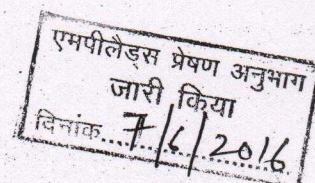 एमपीलैड्स प्रेषण अनुभाग
जारी किया
दिनांक...7/6/2016